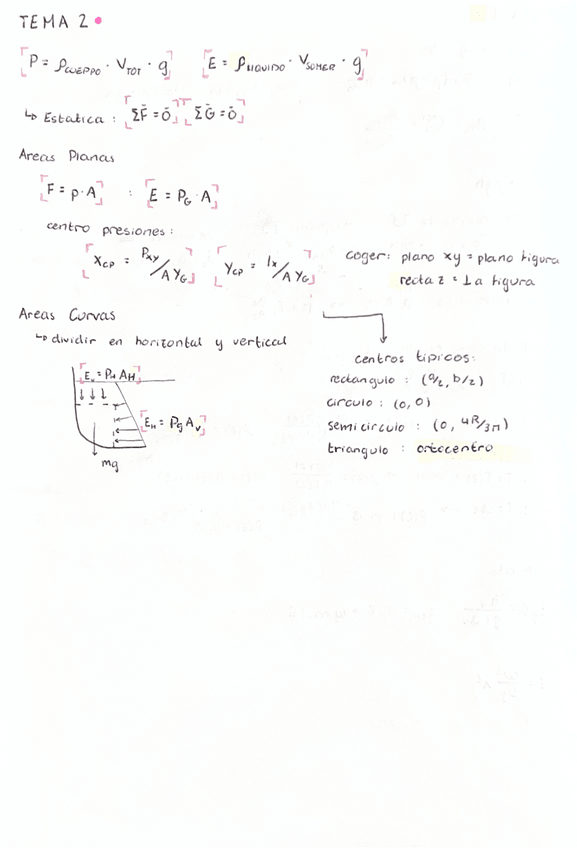 TEMA 2
P = ρCUERPO · VTOT · g   E = ρLIQUIDO · VSUMER · g
↳ Estatica : ΣF̄ = ō   ΣḠ = ō
Areas Planas
F = p · A : E = PG · A
centro presiones:
XCP = Pxy / A YG   YCP = Ix / A YG
coger: plano xy = plano figura
recta z = ⊥ a figura
Areas Curvas
↳ dividir en horizontal y vertical
Ev = PH AH
EH = PG AV
mg
centros tipicos:
rectangulo : (a/2, b/2)
circulo : (0, 0)
semicirculo : (0, 4R/3π)
triangulo : ortocentro